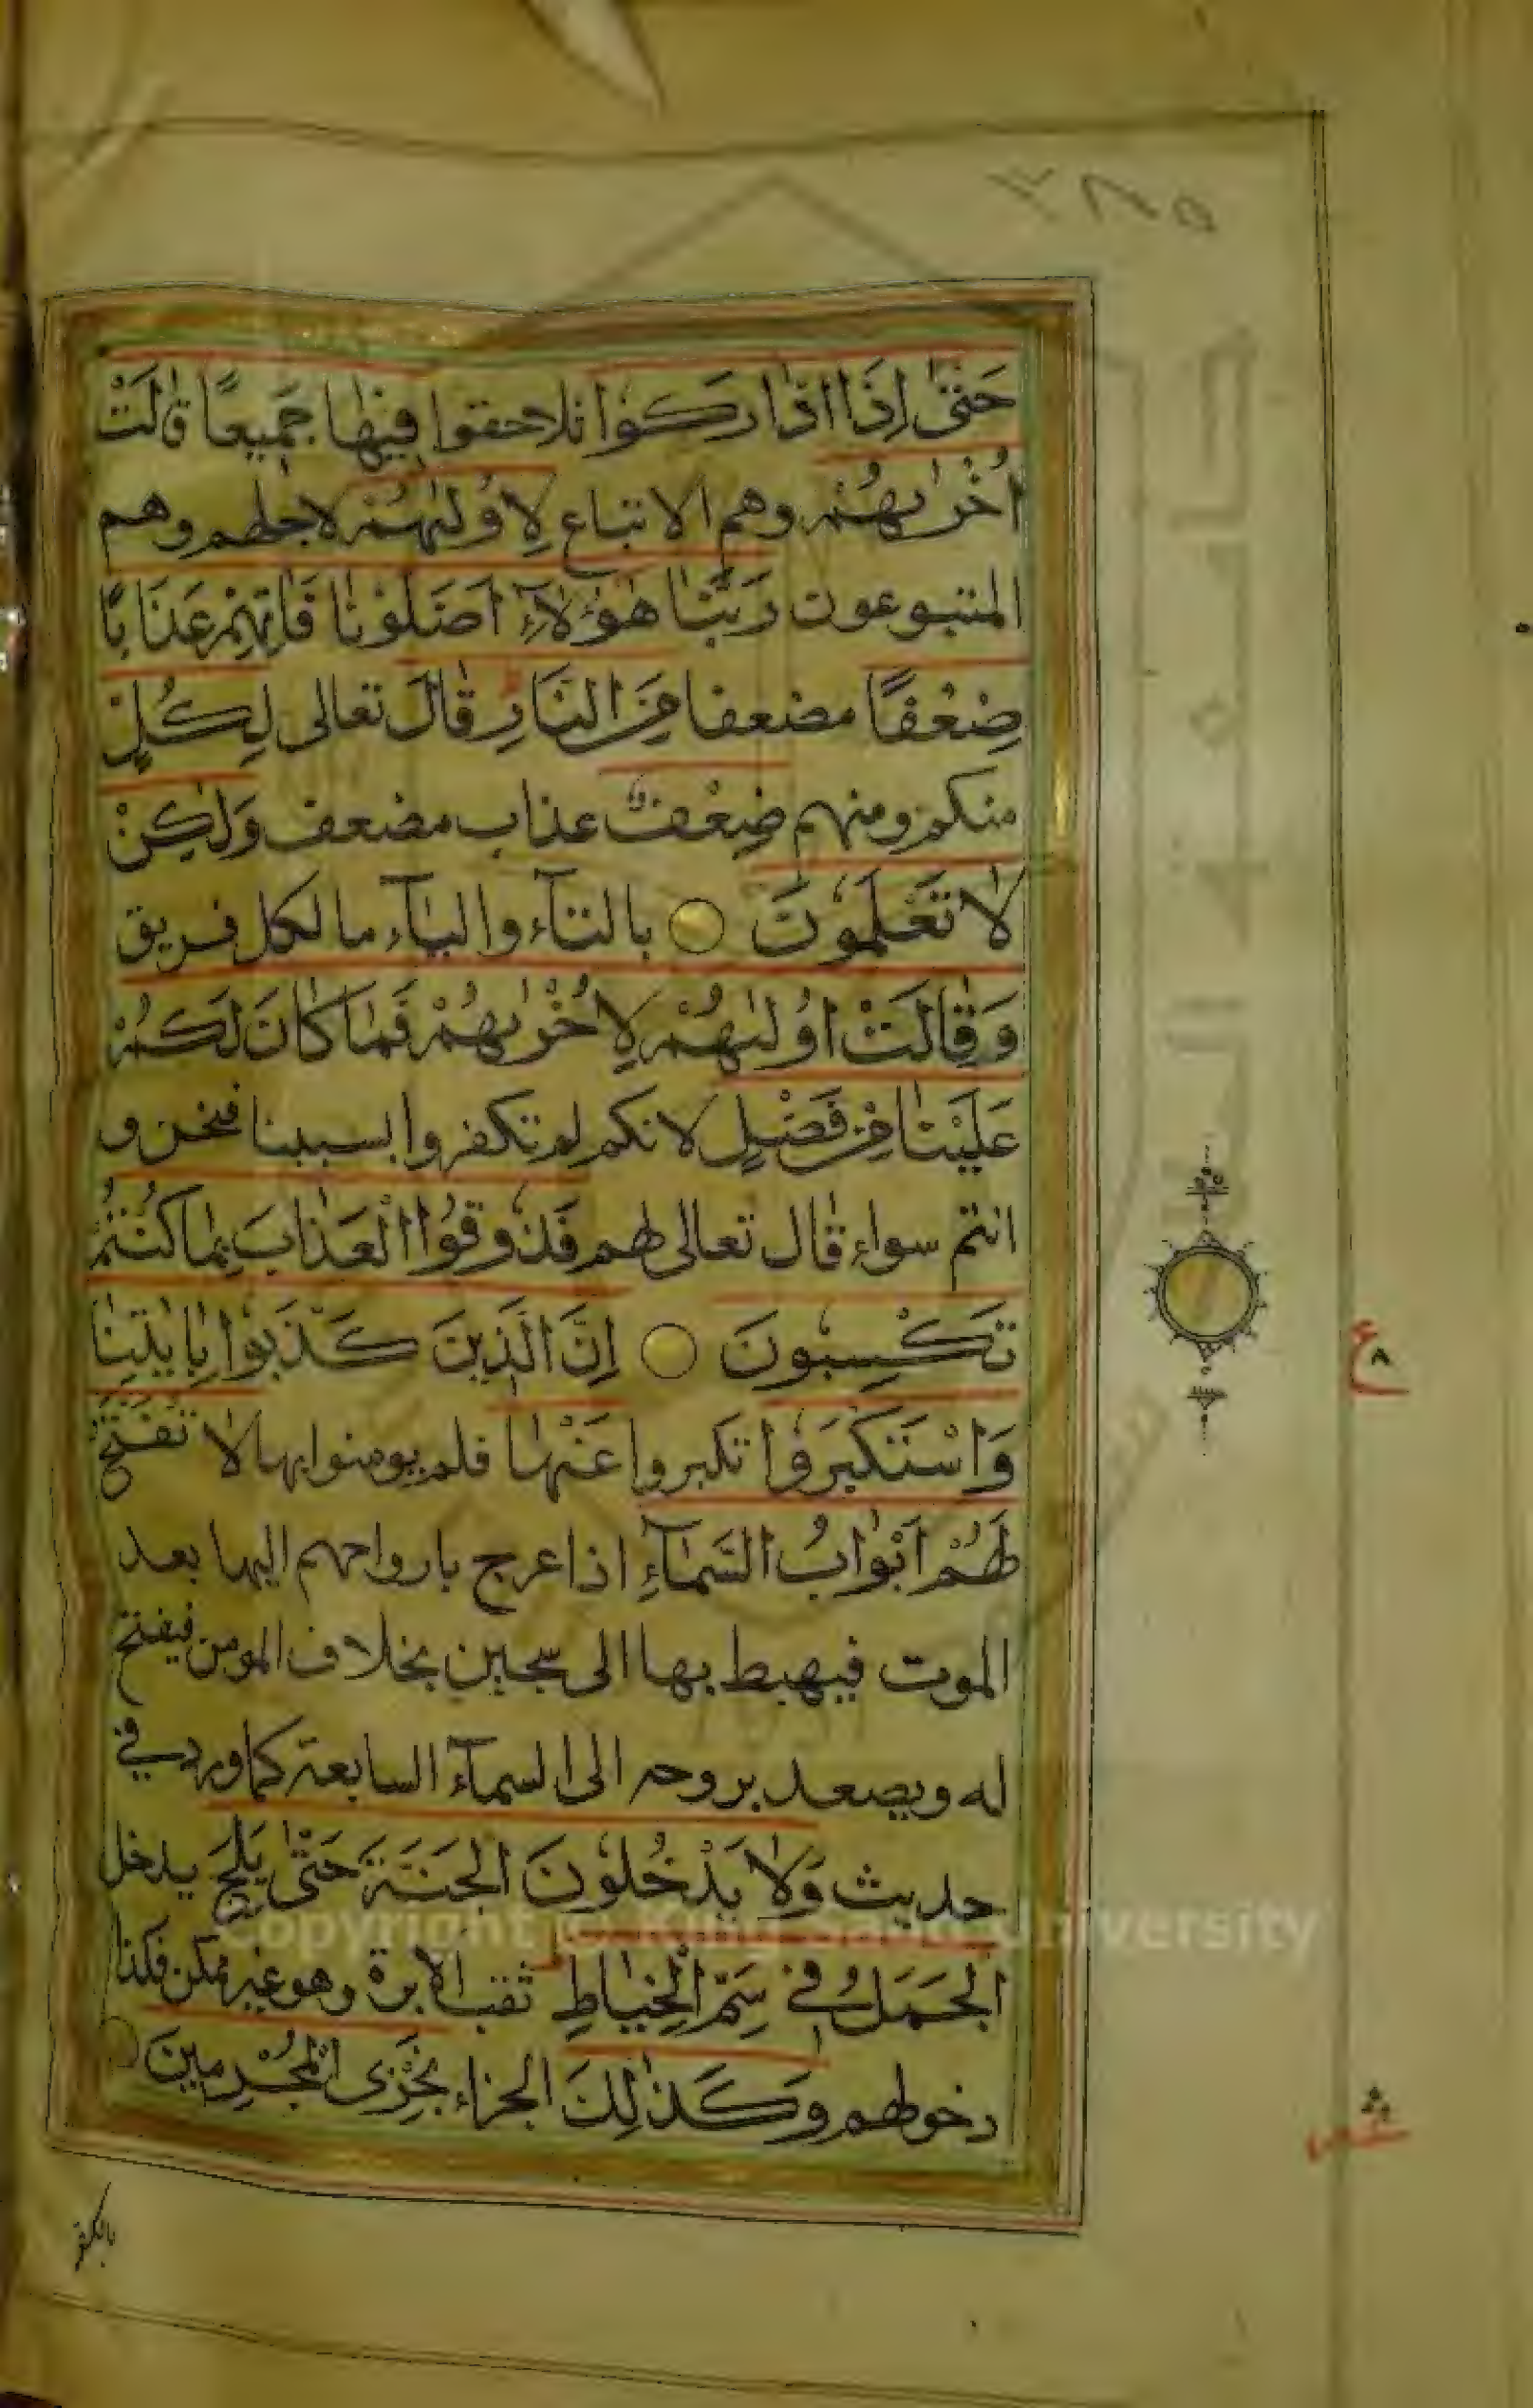 ٣٨٥
حَتّٰى اِذَا ادَّارَكُوْا تلاحقوا فِيْهَا جَمِيْعًا قَالَتْ
اُخْرٰىهُمْ وهم الاتباع لِاُوْلٰىهُمْ لاجلهم وهم
المتبوعون رَبَّنَا هٰؤُلَاءِ اَضَلُّوْنَا فَاٰتِهِمْ عَذَابًا
ضِعْفًا مضعفا مِنَ النَّارِ قَالَ تعالى لِكُلٍّ
منكم ومنهم ضِعْفٌ عذاب مضعف وَلٰكِنْ
لَا تَعْلَمُوْنَ بالتآء واليآء ما لكل فريق
وَقَالَتْ اُوْلٰىهُمْ لِاُخْرٰىهُمْ فَمَا كَانَ لَكُمْ
عَلَيْنَا مِنْ فَضْلٍ لانكم لم تكفروا بسببنا فنحن و
انتم سواء قال تعالى لهم فَذُوْقُوا الْعَذَابَ بِمَا كُنْتُمْ
تَكْسِبُوْنَ اِنَّ الَّذِيْنَ كَذَّبُوْا بِاٰيٰتِنَا
وَاسْتَكْبَرُوْا تكبروا عَنْهَا فلم يومنوا بها لَا تُفَتَّحُ
لَهُمْ اَبْوَابُ السَّمَآءِ اذا عرج بارواحهم اليها بعد
الموت فيهبط بها الى سجين بخلاف المومن فيفتح
له ويصعد بروحه الى السمآء السابعة كما ورد في
حديث وَلَا يَدْخُلُوْنَ الْجَنَّةَ حَتّٰى يَلِجَ يدخل
الْجَمَلُ فِيْ سَمِّ الْخِيَاطِ ثقب الابرة وهو غير ممكن فكذا
دخولهم وَكَذٰلِكَ الجزاء نَجْزِى الْمُجْرِمِيْنَ
بالكفر
ع ٨
Copyright © King Saud University